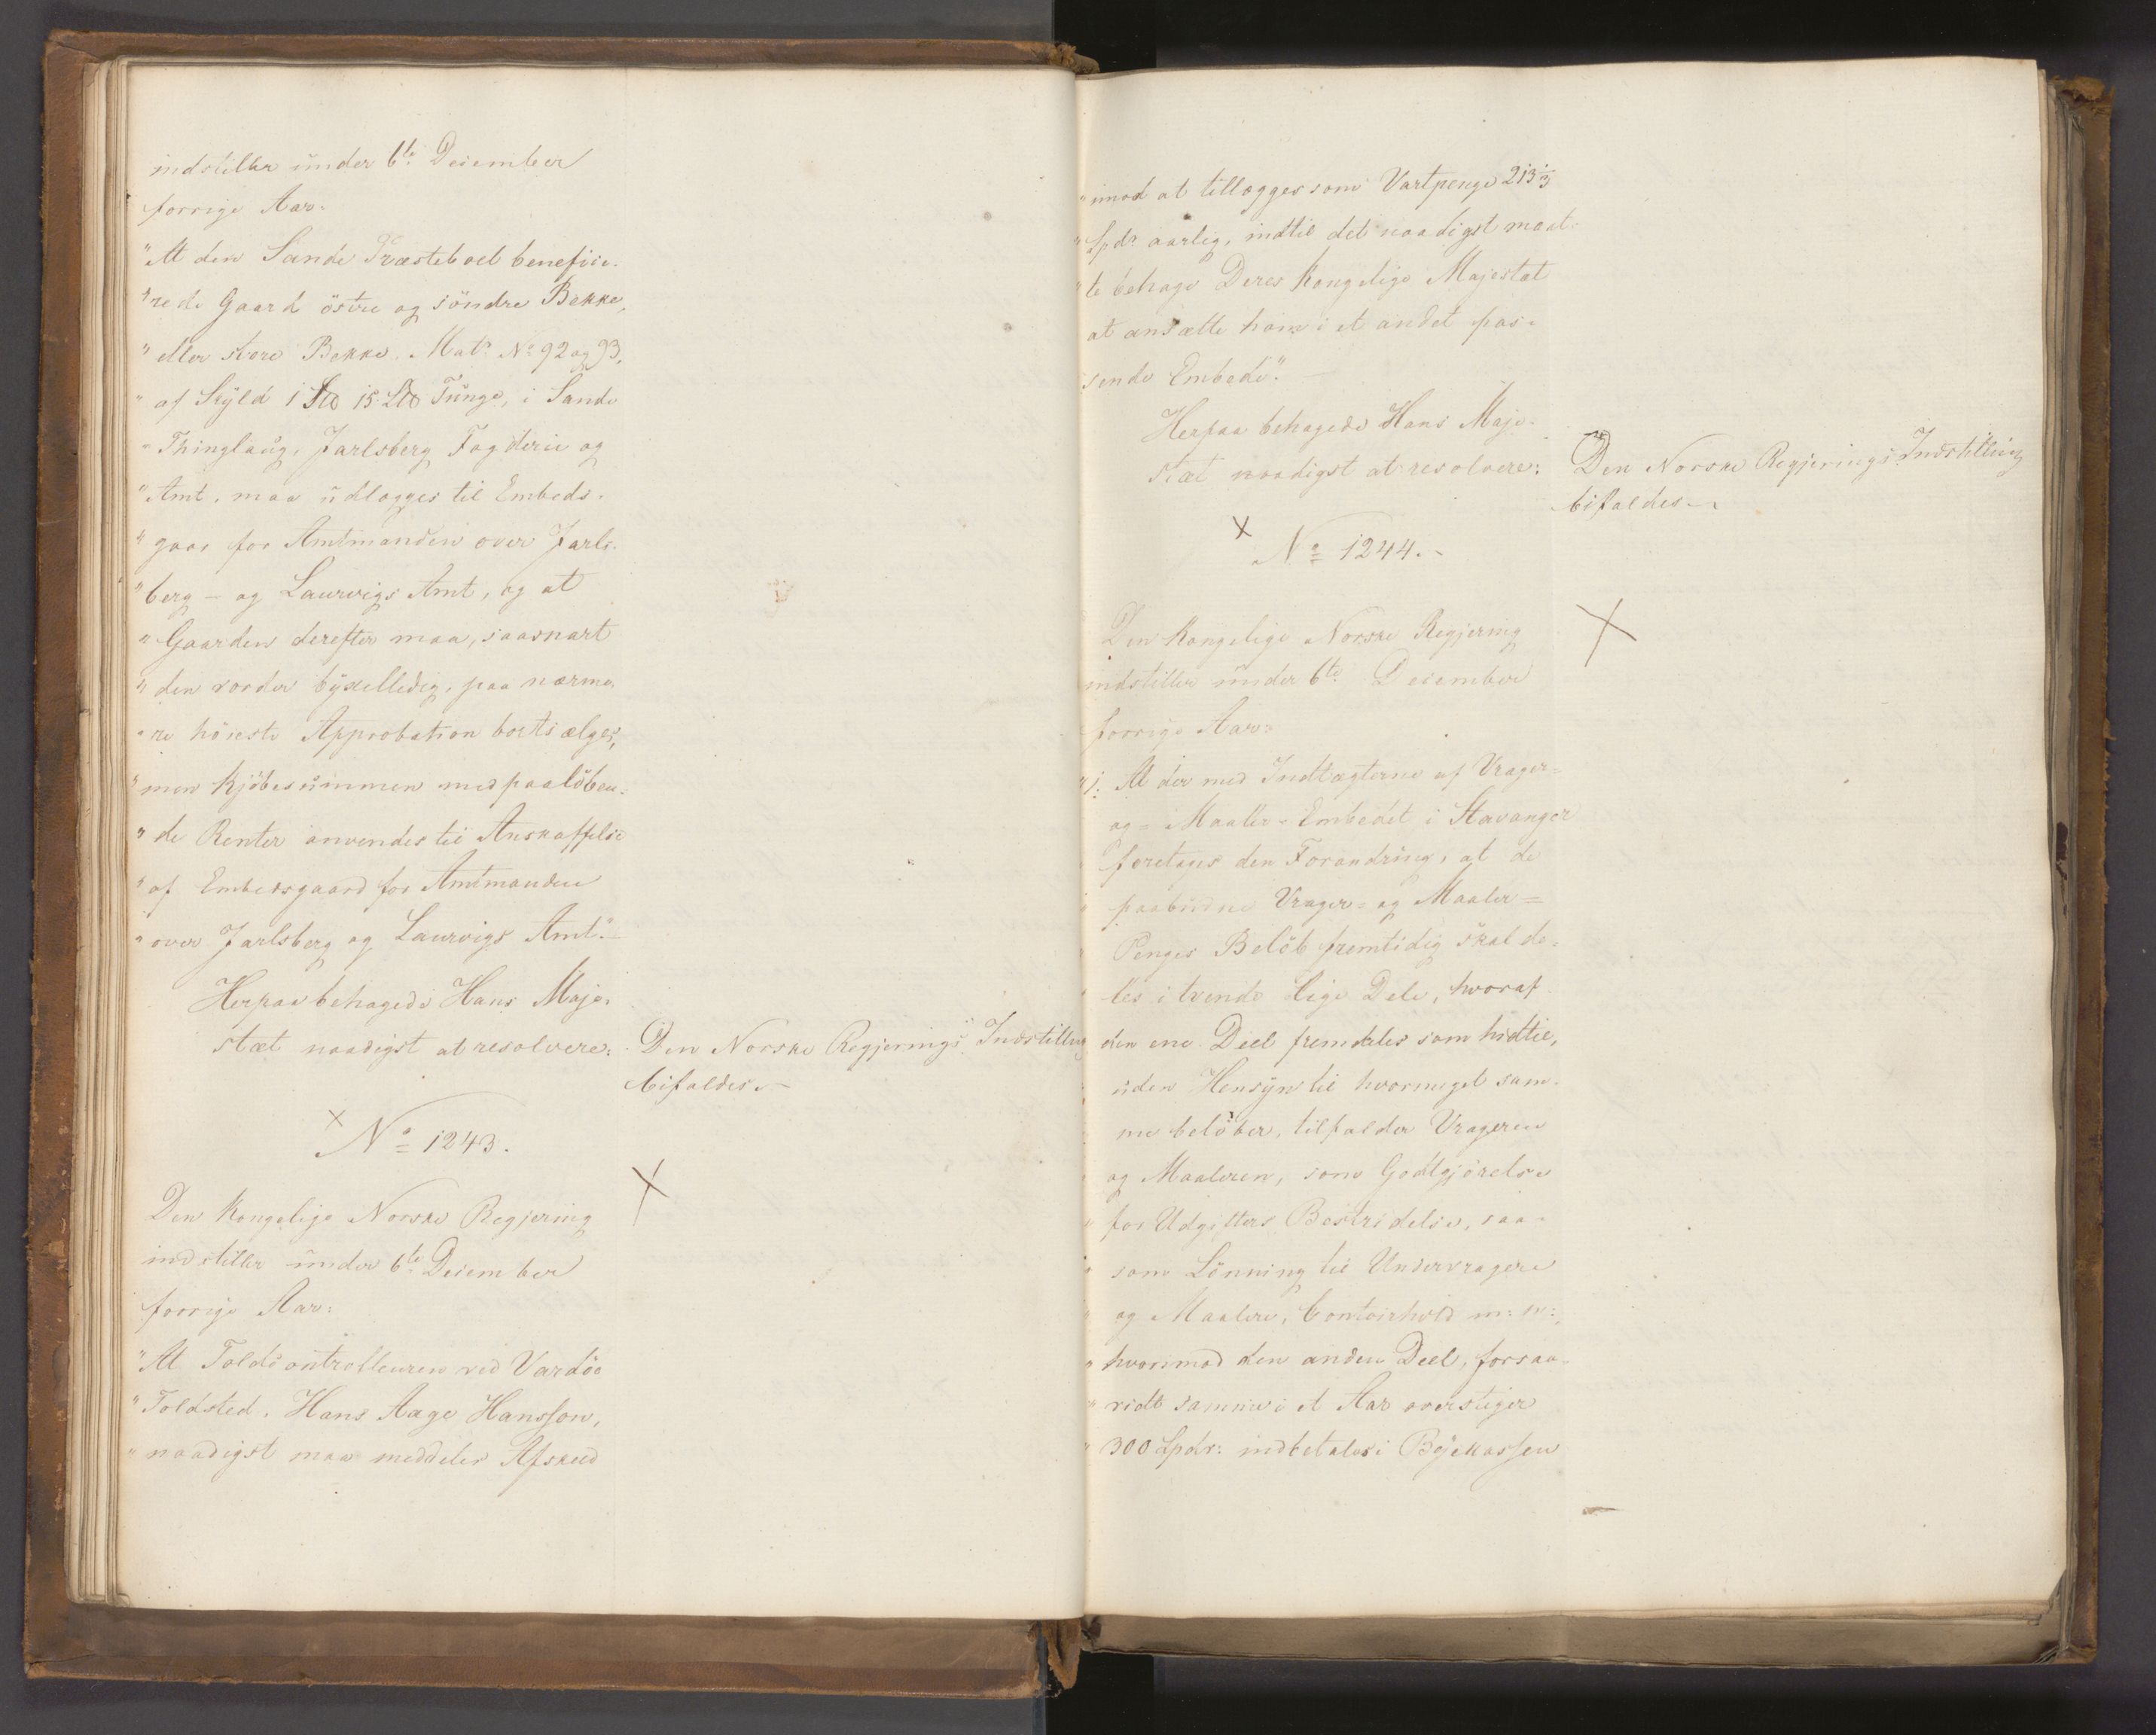 indstiller under 6te December
forrige Aar:
"At den Sande Præsteboel benefice-
"rede Gaard östre og söndre Bekke,
"eller store Bekke, Matr. No 92 og 93,
"af Skyld 1 15 Tunge, i Sande
"Thinglaug, Jarlsberg Fogderie og
"Amt, maa udlægges til Embeds-
"gaar for Amtmanden over Jarls-
"berg - og Laurvigs Amt, og at
"Gaarden derefter maa, saasnart
"den vorder byxelledig, paa nærme-
"re höieste Approbation bortsælges,
"men Kjöbesummen med paalöben-
"de Renter anvendes til Anskaffelse
"af Embedsgaard for Amtmanden
"over Jarlsberg og Laurvigs Amt."
Herpaa behagede Hans Maje-
stæt naadigst at resolvere:
Den Norske Regjerings Indstilling
bifaldes.
× No 1243.
×
Den Kongelige Norske Regjering
indstiller under 6te December
forrige Aar:
"At Toldcontrolleuren ved Vardöe
"Toldsted, Hans Aage Hansson,
"naadigst maa meddeles Afskeed
"imod at tillægges som Vartpenge 213 1/3
"Spdr aarlig, indtil det naadigst maat-
"te behage Deres Kongelige Majestæt
at ansætte ham i et andet pas-
sende Embede."
Herpaa behagede Hans Maje-
stæt naadigst at resolvere:
Den Norske Regjerings Indstilling
bifaldes.
× No 1244.
×
Den Kongelige Norske Regjering
indstiller under 6te December
forrige Aar:
"1: At der med Indtægterne af Vrager=
og=Maaler=Embedet i Stavanger
foretages den Forandring, at de
" paabudne Vrager= og Maaler=
" Penges Belöb fremtidig skal de-
" les i tvende lige Dele, hvoraf
den ene Deel fremdeles som hidtil,
uden Hensyn til hvormeget sam-
me belöber, tilfalder Vrageren
og Maaleren, som Godtgjörelse
" for Udgifters Bestridelse, saa-
" som Lönning til Undervragere
" og Maalere, Contoirhold m: m:,
" hvorimod den anden Deel, forsaa-
" vidt samme i et Aar overstiger
" 300 Spdr: indbetales i Byekassen